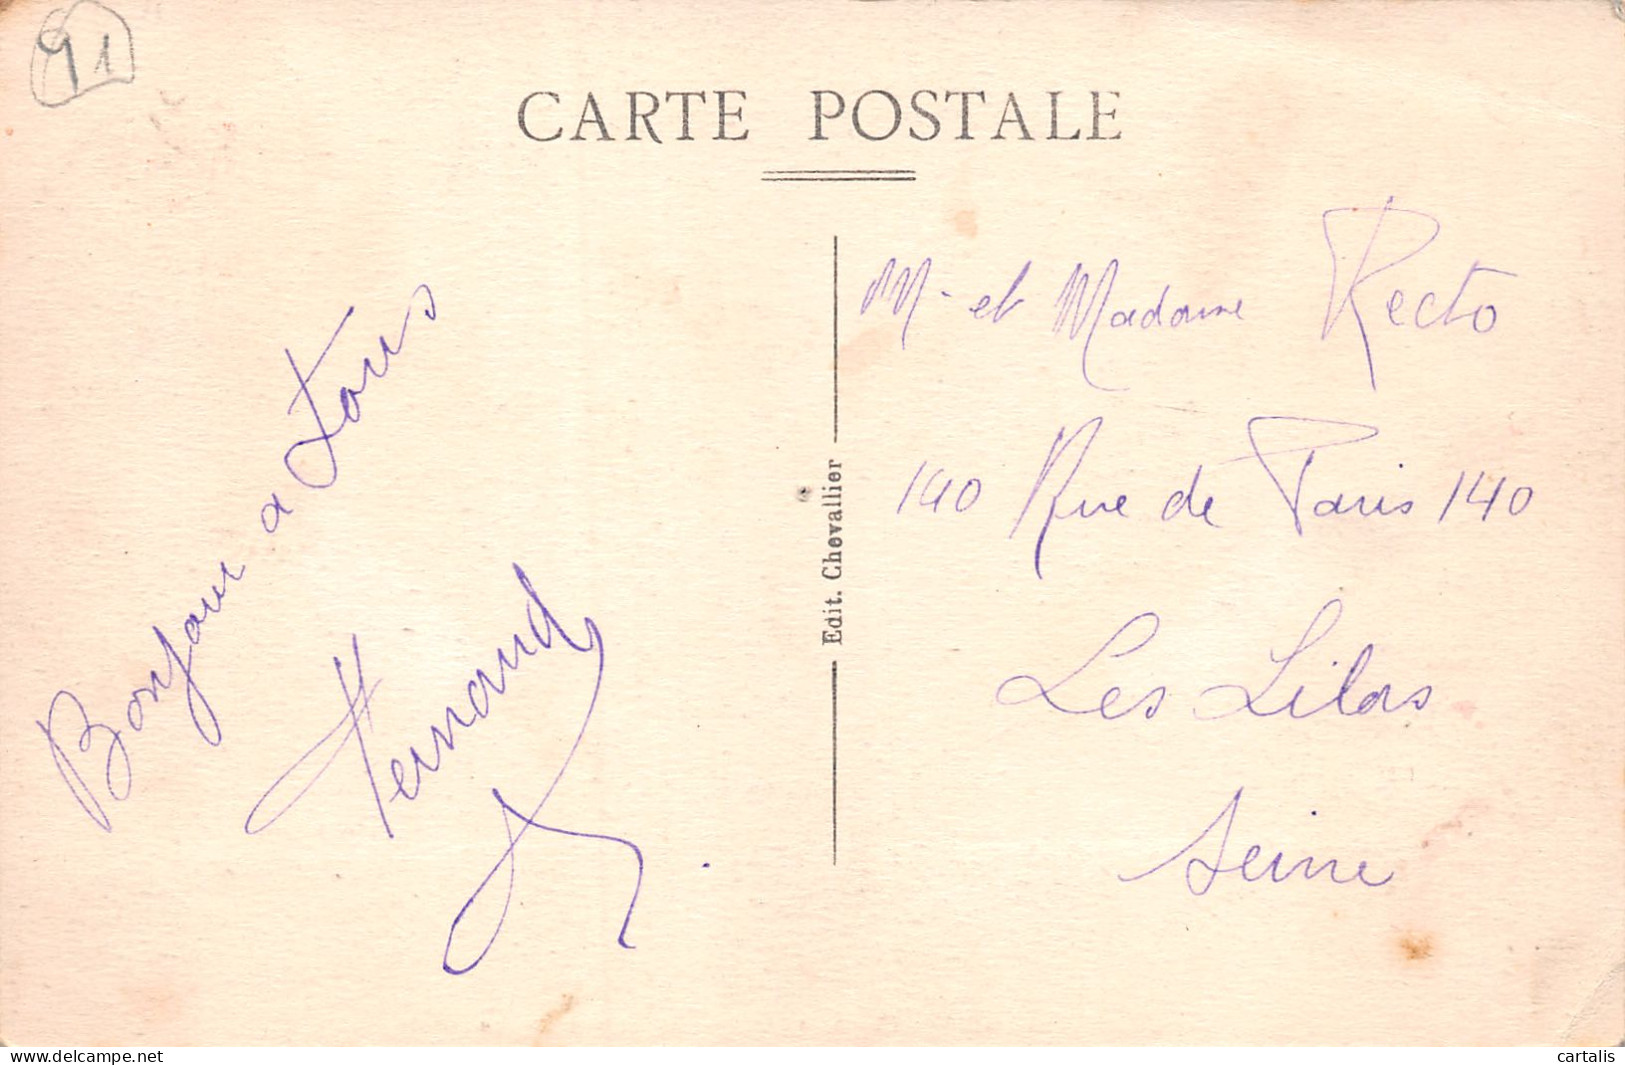 91
CARTE POSTALE
Bonjour a tous
Fernand
Edit. Chevallier
M. et Madame Recto
140 Rue de Paris 140
Les Lilas
Seine
www.delcampe.net
cartalis